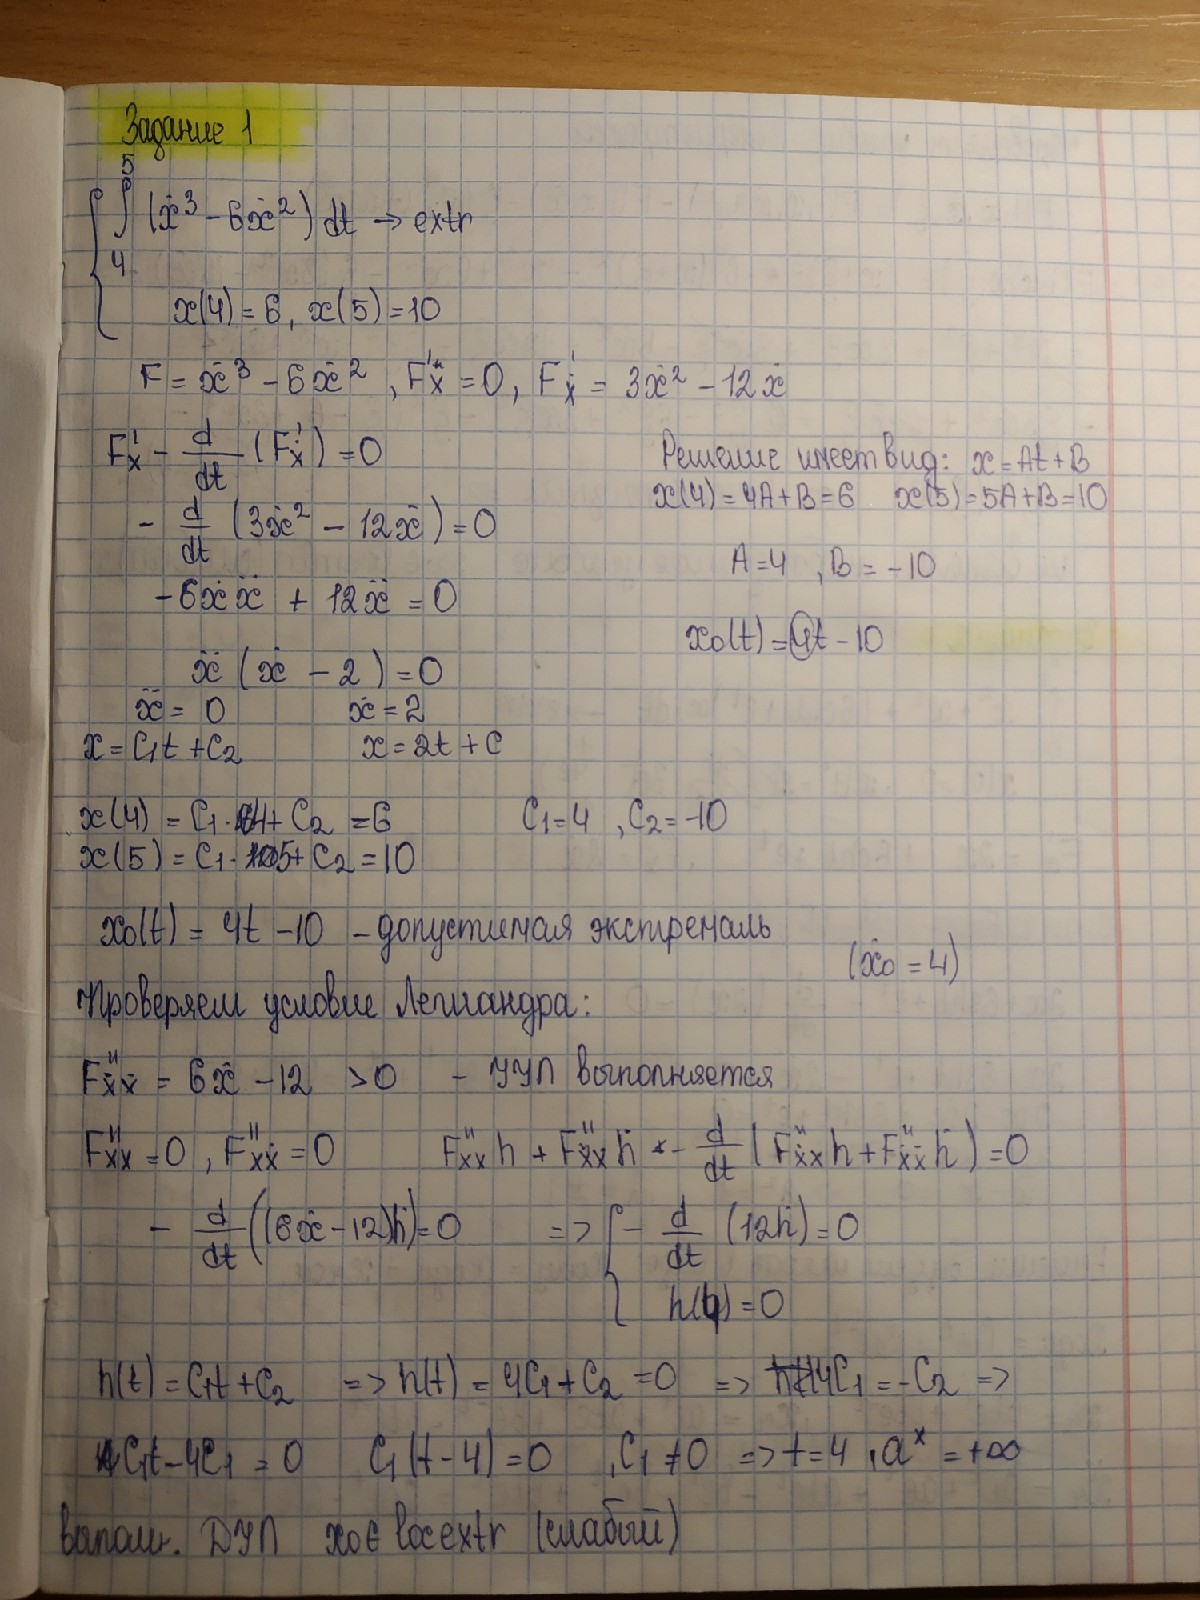 Задание 1
∫₄⁵ (ẋ³ - 6ẋ²) dt → extr
x(4) = 6, x(5) = 10
F = ẋ³ - 6ẋ², F'ₓ = 0, F'ẋ = 3ẋ² - 12ẋ
F'ₓ - d/dt (F'ẋ) = 0
- d/dt (3ẋ² - 12ẋ) = 0
-6ẋẍ + 12ẍ = 0
ẍ (ẋ - 2) = 0
ẍ = 0 ẋ = 2
x = C₁t + C₂ x = 2t + C
Решение имеет вид: x = At + B
x(4) = 4A + B = 6 x(5) = 5A + B = 10
A = 4, B = -10
x₀(t) = 4t - 10
x(4) = C₁·4 + C₂ = 6 C₁ = 4, C₂ = -10
x(5) = C₁·5 + C₂ = 10
x₀(t) = 4t - 10 - допустимая экстремаль
(ẋ₀ = 4)
Проверяем условие Лежандра:
F''ẋẋ = 6ẋ - 12 > 0 - УУЛ выполняется
F''xx = 0, F''xẋ = 0 F''xx h + F''ẋx ḣ - d/dt (F''ẋx h + F''ẋẋ ḣ) = 0
- d/dt ((6ẋ - 12)ḣ) = 0 => { - d/dt (12ḣ) = 0
h(4) = 0
h(t) = C₁t + C₂ => h(t) = 4C₁ + C₂ = 0 => 4C₁ = -C₂ =>
C₁t - 4C₁ = 0 C₁(t - 4) = 0, C₁ ≠ 0 => t = 4, a* = +∞
выполн. ДУЛ x₀ ∈ locextr (слабый)